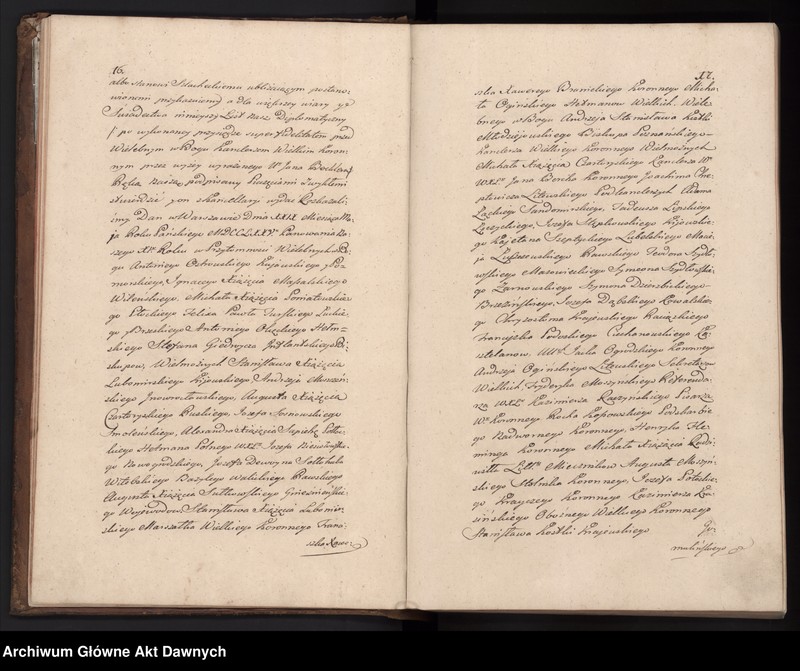 16.
albo stanowi Szlacheckiemu ubliżaiącym postano-
wieniem przyłączaiemy a dla większey wiary
Świadectwa ninieyszy List Nasz Diplomatyczny
po wykonaney przysiędze super fidelitatem przed
Wielebnym w Bogu Kanclerzem Wielkim Koron-
nym przez wyżey wyrażonego Jana
Ręką Naszą podpisany Pieczęciami zwykłemi
stwierdzić y on z kancellaryi wydać Rozkazali-
śmy Dan w Warszawie Dnia XXIX Miesiąca Ma-
ja Roku Pańskiego MDCCLXXVo Panowania Na-
szego XIo Roku w Przytomności Wielebnych w Bo-
gu Antoniego Ostrowskiego Kujawskiego y Po-
morskiego, Ignacego Xiążęcia Massalskiego
Wileńskiego. Michała Xiążęcia Poniatowskie
go Płockiego Felixa Pawła Turskiego Łuckie-
go y Brzeskiego Antoniego Okęckiego Chełm-
skiego Stefana Giedroycia Inflantskiego Bi-
skupow, Wielmożnych Stanisława Xiążęcia
Lubomirskiego Kijowskiego Andrzeja Moszczeń-
skiego Inowrocławskiego, Augusta Xiążęcia
Czartoryskiego Ruskiego, Jozefa Sosnowskiego
Smoleńskiego, Alexandra Xiążęcia Sapiehę Poło-
ckiego Hetmana Polnego WXLo Jozefa Niesiołowskie-
go Nowogrodzkiego, Jozefa Sołłohuba
Witebskiego Bazylego Walickiego Rawskiego
Augusta Xiążęcia Sułkowskiego Gnieźnińskie-
go Woiewodow Stanisława Xiążęcia Lubomir-
skiego Marszałka Wielkiego Koronnego Franci-
szka Xawer
17.
szka Xawerego Branickiego Koronnego Micha-
ła Ogińskiego Hetmanow Wielkich. Wiele-
bnego w Bogu Andrzeja Stanisława Kostki
Młodziejowskiego Biskupa Poznańskiego
Kanclerza Wielkiego Koronnego Wielmożnych
Michała Xiążęcia Czartoryskiego Kanclerza Wo
WXLo Jana Borcha Koronnego Joachima Chre-
ptowicza Litewskiego Podkanclerzych Adama
Łąckiego Sandomirskiego, Tadeusza Lipskiego
Łęczyckiego, Jozefa Stępkowskiego Kijowskie-
go Kajetana Szeptyckiego Lubelskiego Macie-
ja Rawskiego Teodora Szydło-
wskiego Mazowieckiego Symeona Szydłowskie-
go Żarnowskiego Szymona Dzierzbickiego
Brzezińskiego, Jozefa Dąbskiego Kowalskie
go Chryzostoma Krajewskiego Raciąskiego
Franciszka Podoskiego Ciechanowskiego Ka-
sztelanow. Jacka Ogrodzkiego Koronnego
Andrzeja Ogińskiego Litewskiego Sekretarzow
Wielkich, Fryderyka Moszyńskiego Referenda-
rza WXLo Kazimierza Raczyńskiego Pisarza
Wo Koronnego Rocha Kossowskiego Podskarbie
go Nadwornego Koronnego, Henryka Fle-
minga Koronnego Michała Xiążęcia Radzi-
wiłła Litto Miecznikow Augusta Moszyń-
skiego Stolnika Koronnego, Jozefa Potockie-
go Krayczego Koronnego Kazimierza Kra-
sińskiego Oboznego Wielkiego Koronnego
Stanisława Kostki Krajewskiego Go-
mulińskiego
Archiwum Główne Akt Dawnych